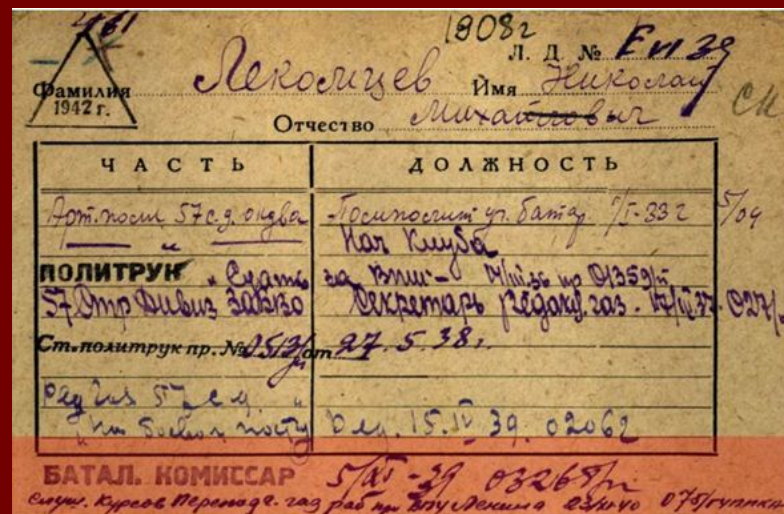 461
1908г
Л. Д. № Е VI 39
Фамилия Лекомцев Имя Николай
1942 г.
Отчество Михайлович СК
ЧАСТЬ ДОЛЖНОСТЬ
Арт. полк 57 с.д. окдва Политрук 33 г 5/09
— " — Нач Клуба
ПОЛИТРУК 01359/п
57 Отр Дивиз ЗабВО Секретарь редакц. газ. 027/п
Ст. политрук пр. № 0513/п от 27.5.38г.
Ред газ 57 с.д. "
"На боевом посту" Ред. 15.IV 39. 02062
БАТАЛ. КОМИССАР 5/XI-39 03268/п
Слуш. Курсов Переподг. газ раб при ВПУ Ленина 075/гуппка